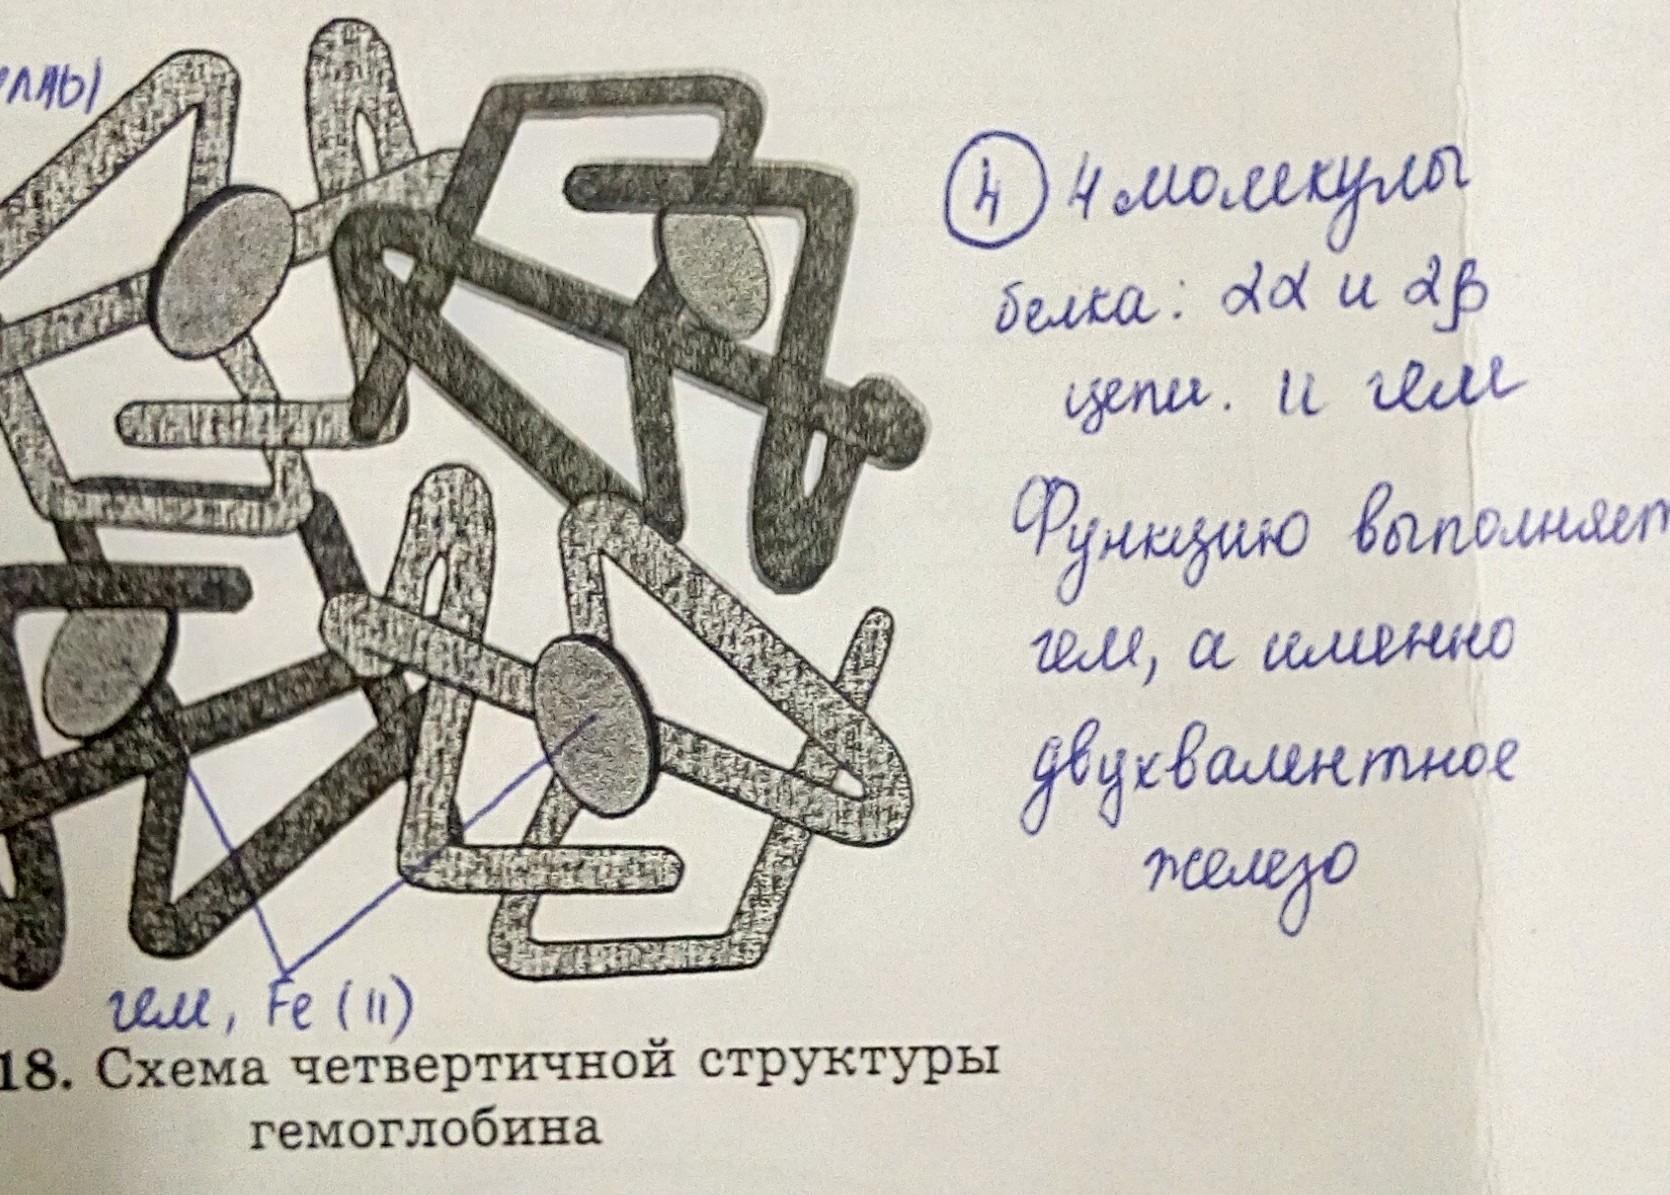 ④ 4 молекулы
белка: 2α и 2β
цепи. и гем
Функцию выполняет
гем, а именно
двухвалентное
железо
гем, Fe (II)
18. Схема четвертичной структуры
гемоглобина